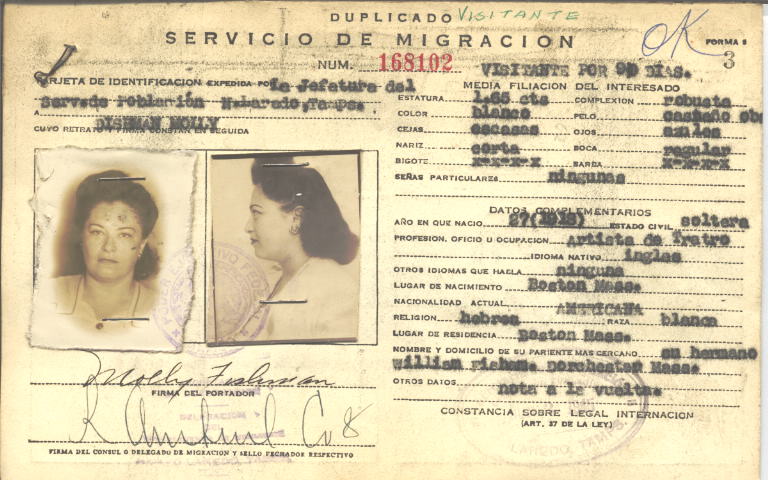 DUPLICADO VISITANTE
SERVICIO DE MIGRACION
OK
FORMA 8
3
NUM. 168102
VISITANTE POR 90 DIAS.
TARJETA DE IDENTIFICACION EXPEDIDA POR La Jefatura del
Serv.de Población N.Laredo,Tamps.
A FISHMAN MOLLY
CUYO RETRATO Y FIRMA CONSTAN EN SEGUIDA
FIRMA DEL PORTADOR
Molly Fishman
DELEGACION
FIRMA DEL CONSUL O DELEGADO DE MIGRACION Y SELLO FECHADOR RESPECTIVO
MEDIA FILIACION DEL INTERESADO
ESTATURA 1.65 cts COMPLEXION robusta
COLOR blanco PELO castaño obs
CEJAS escasas OJOS azules
NARIZ corta BOCA regular
BIGOTE x-x-x-x BARBA x-x-x-x
SEÑAS PARTICULARES ningunas
DATOS COMPLEMENTARIOS
AÑO EN QUE NACIO 27(1918) ESTADO CIVIL soltera
PROFESION, OFICIO U OCUPACION Artista de Teatro
IDIOMA NATIVO ingles
OTROS IDIOMAS QUE HABLA ninguna
LUGAR DE NACIMIENTO Boston Mass.
NACIONALIDAD ACTUAL AMERICANA
RELIGION hebrea RAZA blanca
LUGAR DE RESIDENCIA Boston Mass.
NOMBRE Y DOMICILIO DE SU PARIENTE MAS CERCANO su hermano
william Dorchester Mass.
OTROS DATOS nota a la vuelta.
CONSTANCIA SOBRE LEGAL INTERNACION
(ART. 37 DE LA LEY)
LAREDO, TAMPS.